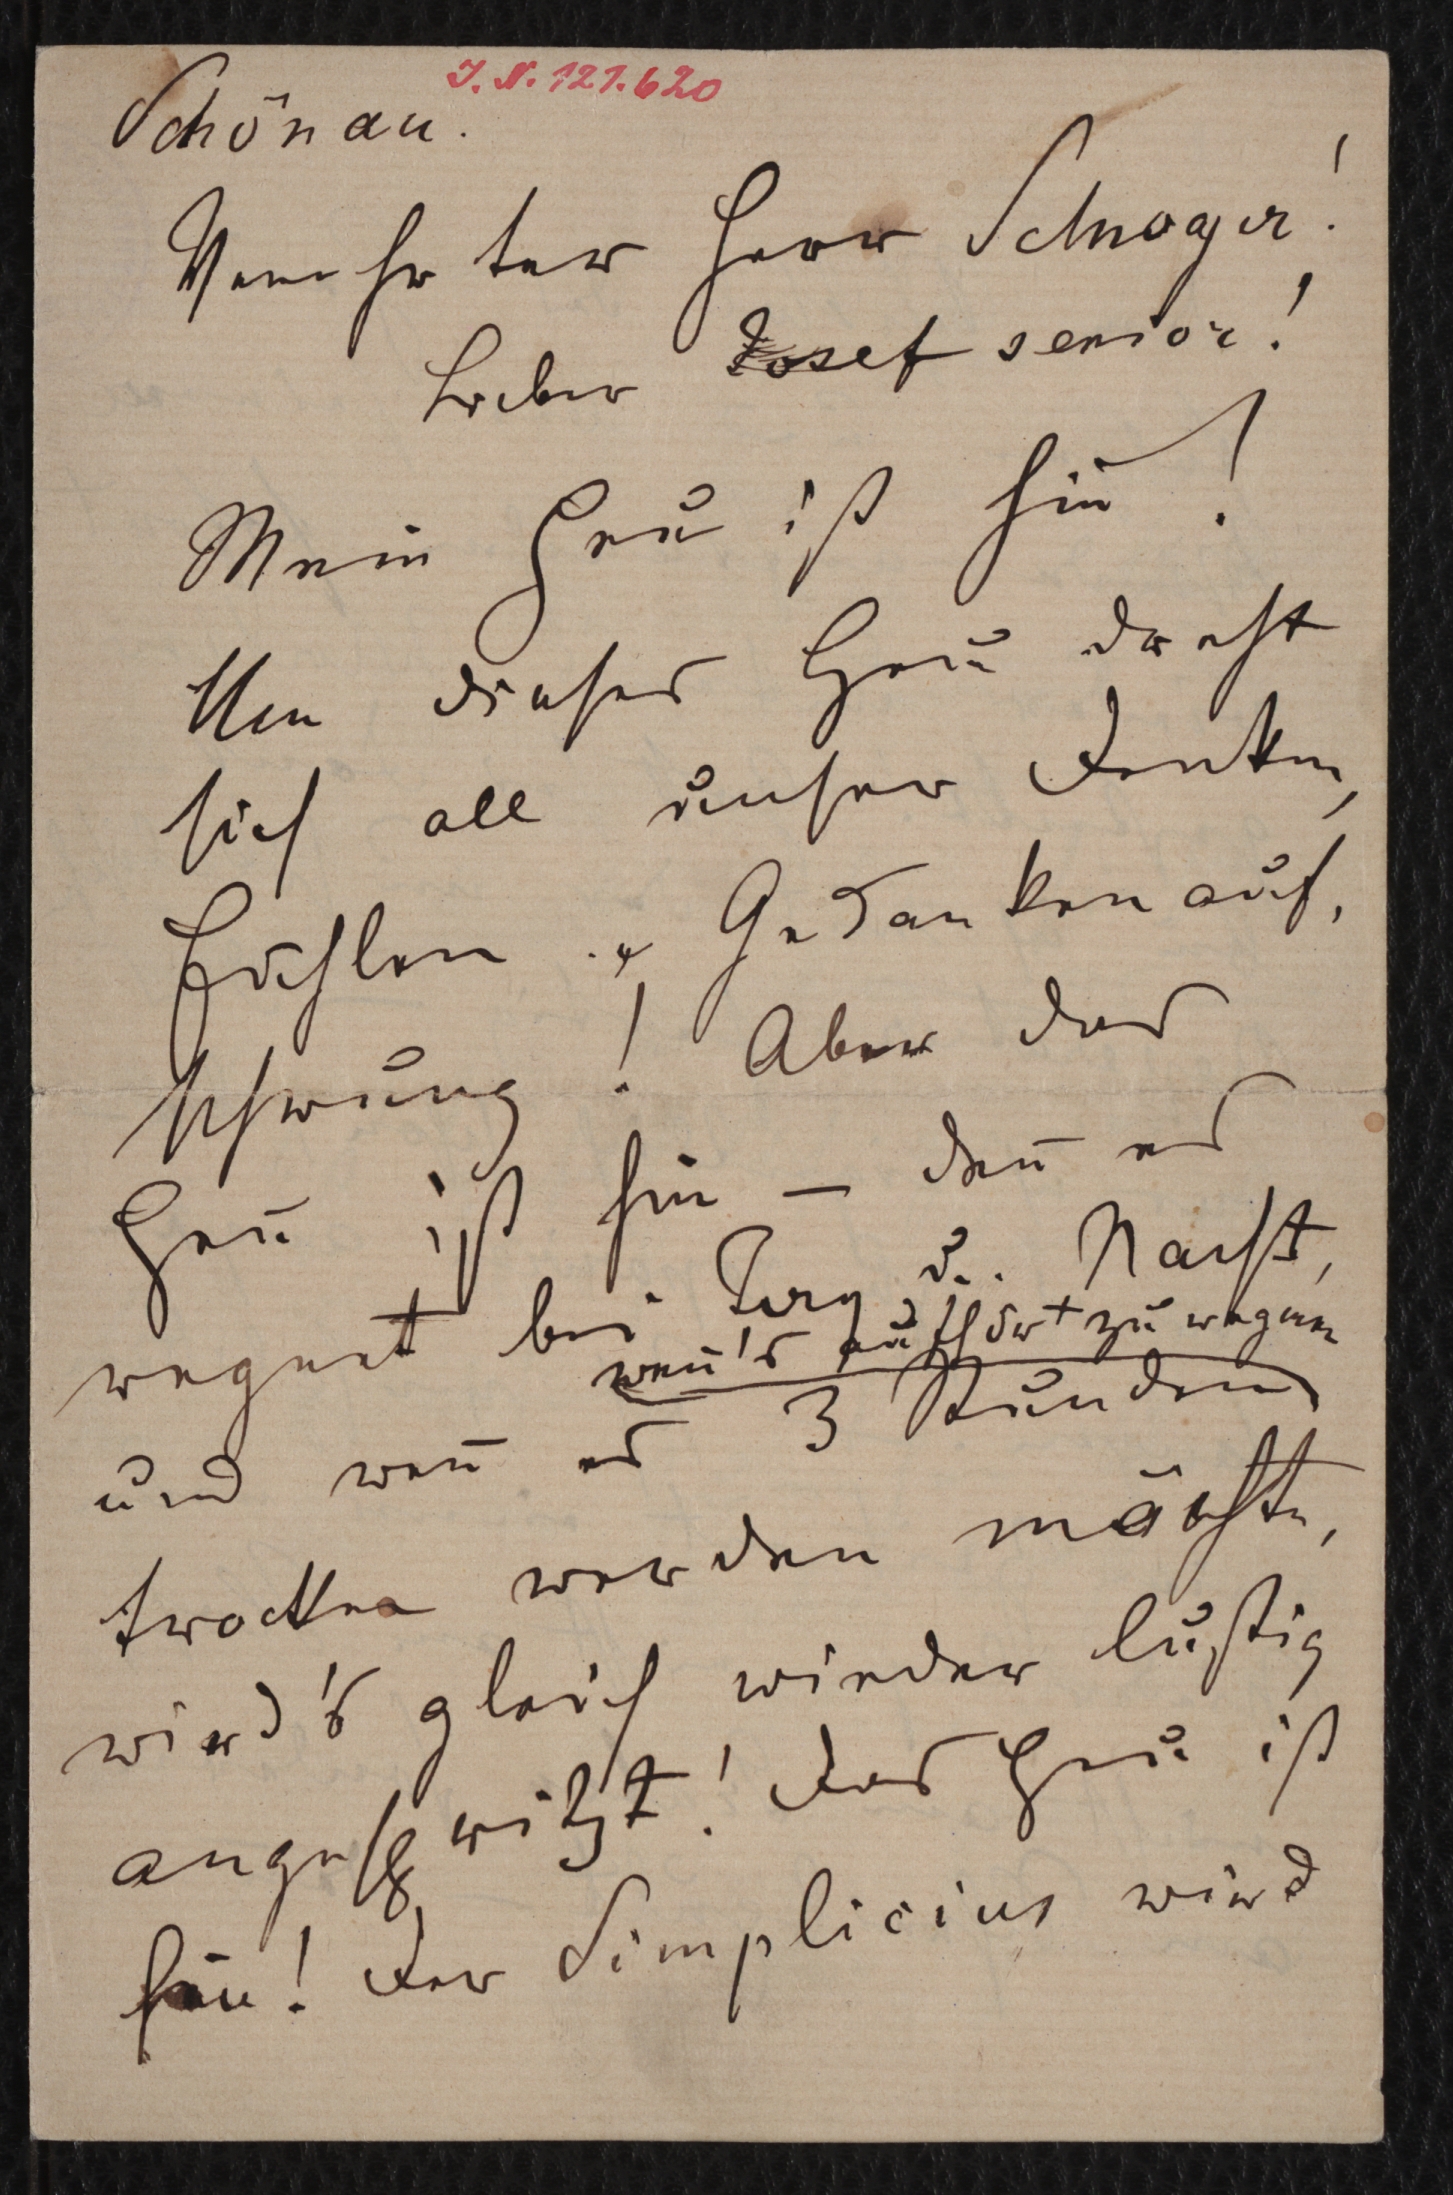 I. N. 121.620
Schönau.
Verehrter Herr
Lieber Josef senior!
Mein Heu ist hin!
Um dieses Heu dreht
sich all unser Denken,
Fühlen u Gedankenauf,
schwung! Aber das
Heu ist hin – den̅ es
regnet bei Tag u. Nacht,
wen̅'s aufhört zu regnen
und wen̅ es 3 Stunden
trocken werden möchte,
wird's gleich wieder lustig
angespritzt! Das Heu ist
hin! Der Simplicius wird